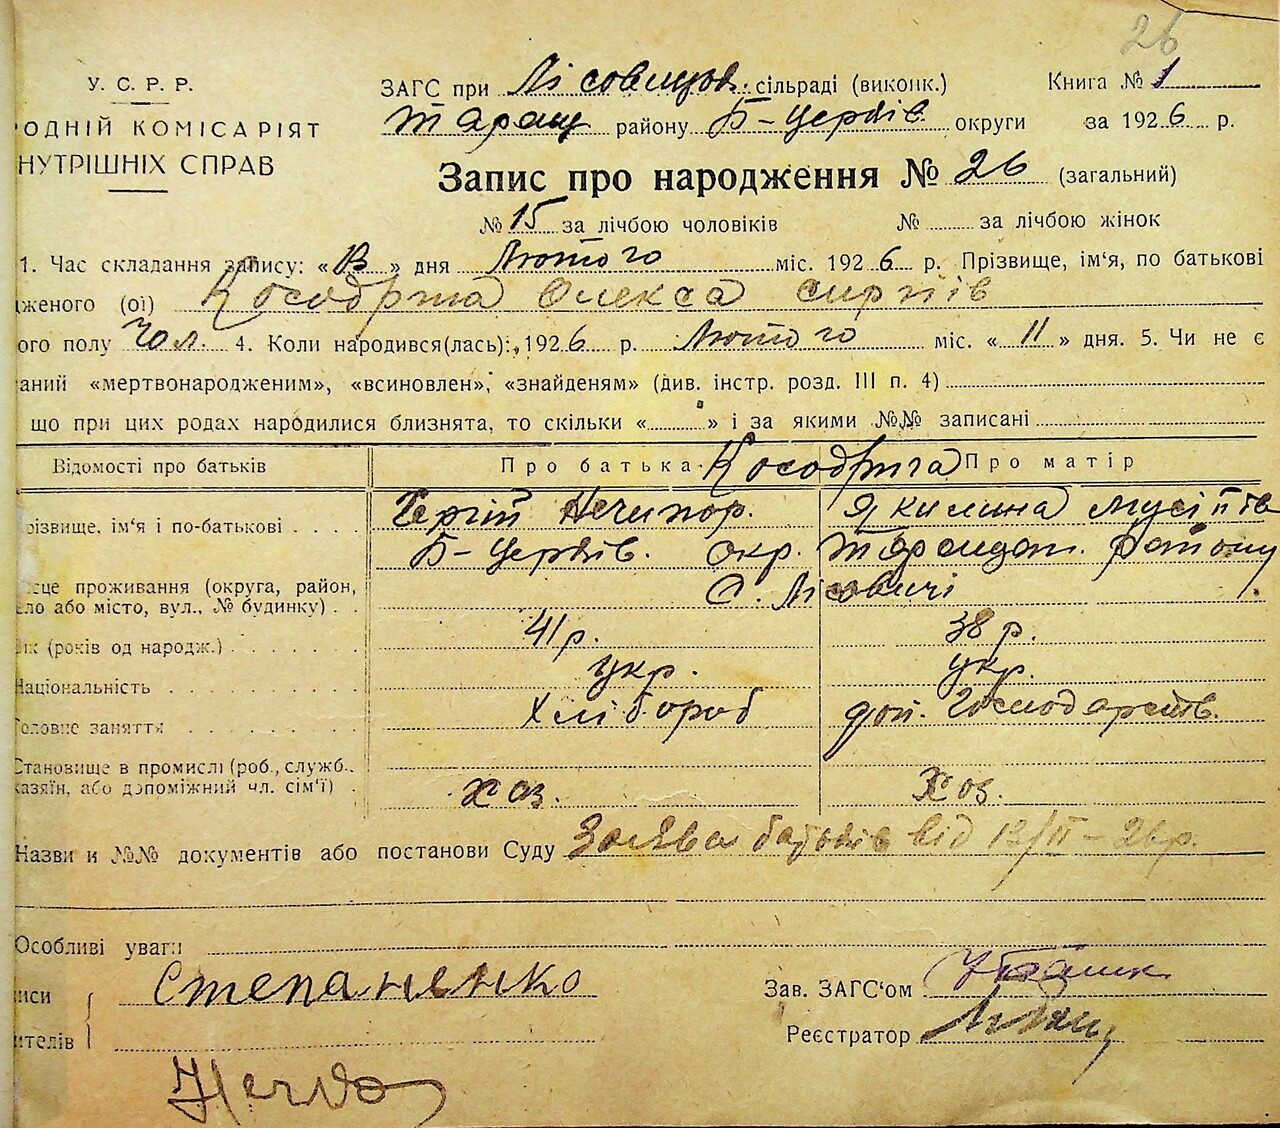 26
У. С. Р. Р.
ЗАГС при Лісовицьк. сільраді (виконк.)
Книга № 1
ОДНІЙ КОМІСАРІЯТ
Таращ районy Б-Церків округи
за 1926 р.
НУТРІШНІХ СПРАВ
Запис про народження № 26 (загальний)
№ 15 за лічбою чоловіків
№ за лічбою жінок
1. Час складання запису: « » дня Лютого міс. 1926 р. Прізвище, ім'я, по батькові
женого (ої) Кособрюха Олекса Сергіїв
ого полу чол. 4. Коли народився(лась): 1926 р. Лютого міс. « 11 » дня. 5. Чи не є
аний «мертвонародженим», «всиновлен», «знайденям» (див. інстр. розд. III п. 4)
що при цих родах народилися близнята, то скільки « » і за якими №№ записані
Відомості про батьків
Про батька
Про матір
різвище, ім'я і по-батькові
Сергій Нечипор.
Якилина Мусіїв
Б-Церків. окр. району
сце проживання (округа, район,
ло або місто, вул., № будинку)
С. Лісовичі
ік (років од народж.)
41 р.
38 р.
Національність
укр.
укр.
Головне заняття
Хлібороб
дом. Господарств.
Становище в промислі (роб., служб.,
хазяїн, або допоміжний чл. сім'ї)
хоз.
Хоз.
Назви и №№ документів або постанови Суду Заява батьків від 12/II-26р.
Особливі уваги
иси
Степаненко
Зав. ЗАГС'ом
ителів
Реєстратор